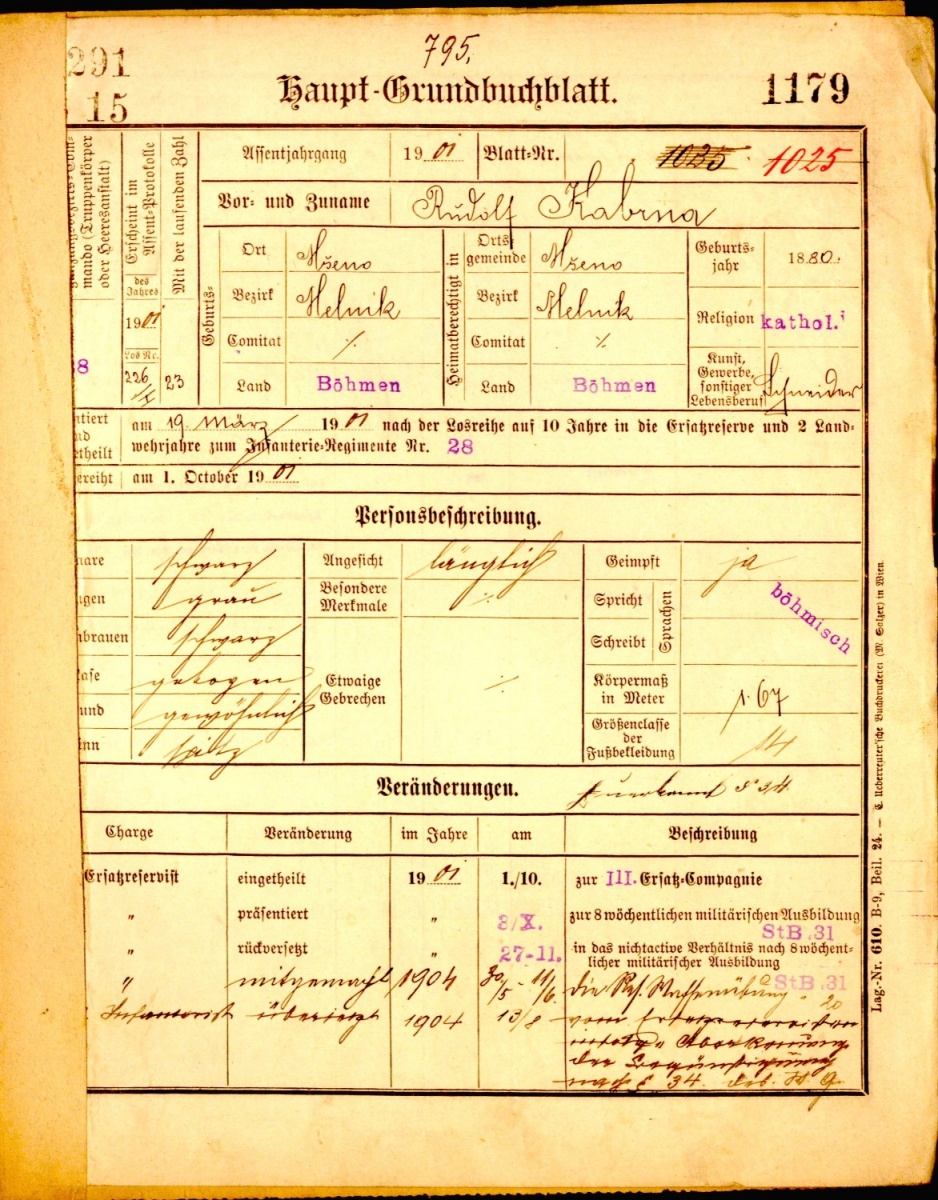 795.
291
15
Haupt-Grundbuchblatt.
1179
mando (Truppenkörper
oder Heeresanstalt)
Erscheint im
Assent-Protokolle
des
Jahres
1901
Los Nr.
226/II
Mit der laufenden Zahl
23
8
Assentjahrgang 1901 Blatt-Nr. 1025 1025
Vor- und Zuname Rudolf Kabrna
Geburts-
Ort Mšeno
Bezirk Melnik
Comitat ./.
Land Böhmen
Heimatberechtigt in
Ortsgemeinde Mšeno
Bezirk Melnik
Comitat ./.
Land Böhmen
Geburts-
jahr 1880.
Religion kathol.
Kunst,
Gewerbe,
sonstiger
Lebensberuf Schneider
am 19. März 1901 nach der Losreihe auf 10 Jahre in die Ersatzreserve und 2 Land-
wehrjahre zum Infanterie-Regimente Nr. 28
ereiht am 1. October 1901
Personsbeschreibung.
are schwarz
gen grau
nbrauen schwarz
ase gebogen
und gewöhnlich
inn spitz
Angesicht länglich
Besondere
Merkmale ./.
Etwaige
Gebrechen ./.
Geimpft ja
Sprachen
Spricht
Schreibt
böhmisch
Körpermaß
in Meter 1·67
Größenclasse
der
Fußbekleidung 14
Veränderungen.
§ 34
Charge Veränderung im Jahre am Beschreibung
Ersatzreservist eingetheilt 1901 1./10. zur III. Ersatz-Compagnie
" präsentiert " 3/X. zur 8 wöchentlichen militärischen Ausbildung
StB.31
" rückversetzt " 27-11. in das nichtactive Verhältnis nach 8 wöchent-
licher militärischer Ausbildung
StB.31
" mitgemacht 1904 30/5 - 11/6. die Res. Waffenübung
Infanterist übersetzt 1904 13/8 vom Ersatzreservisten
infolge Aberkennung
der Begünstigung
nach § 34. des W. G.
Lag.-Nr. 610. B-9, Beil. 24. — C. Ueberreuter'sche Buchdruckerei (M. Salzer) in Wien.